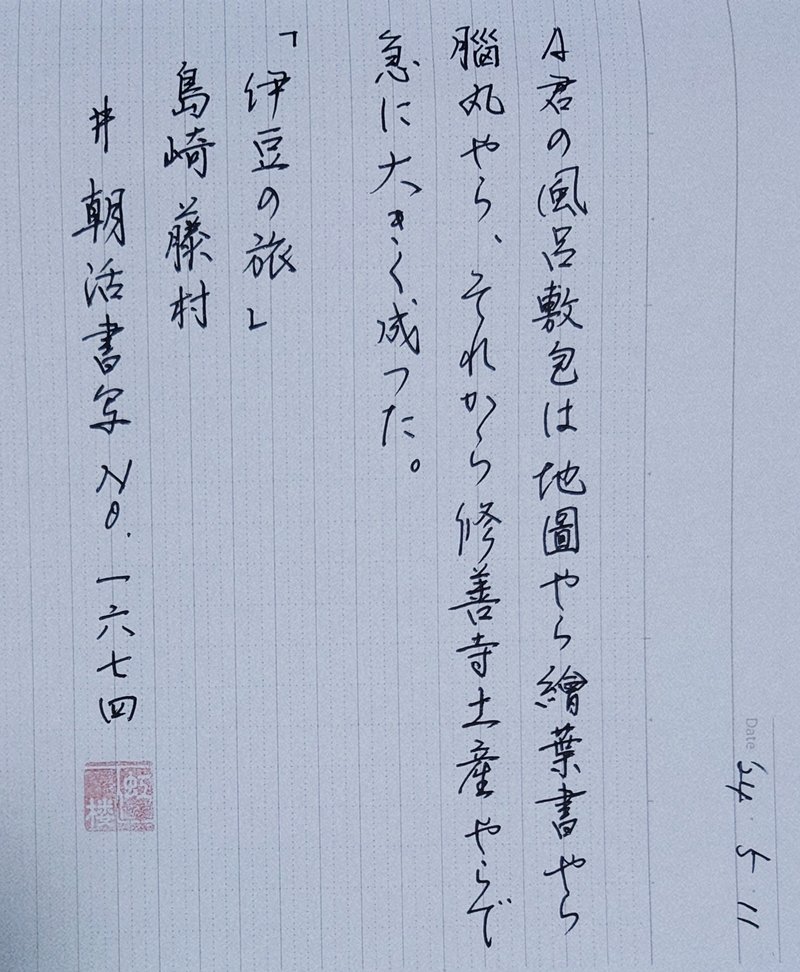 Date 24.5.11
A君の風呂敷包は地圖やら繪葉書やら
腦丸やら、それから修善寺土産やらで
急に大きく成つた。
「伊豆の旅」
島崎藤村
# 朝活書写 No.一六七四